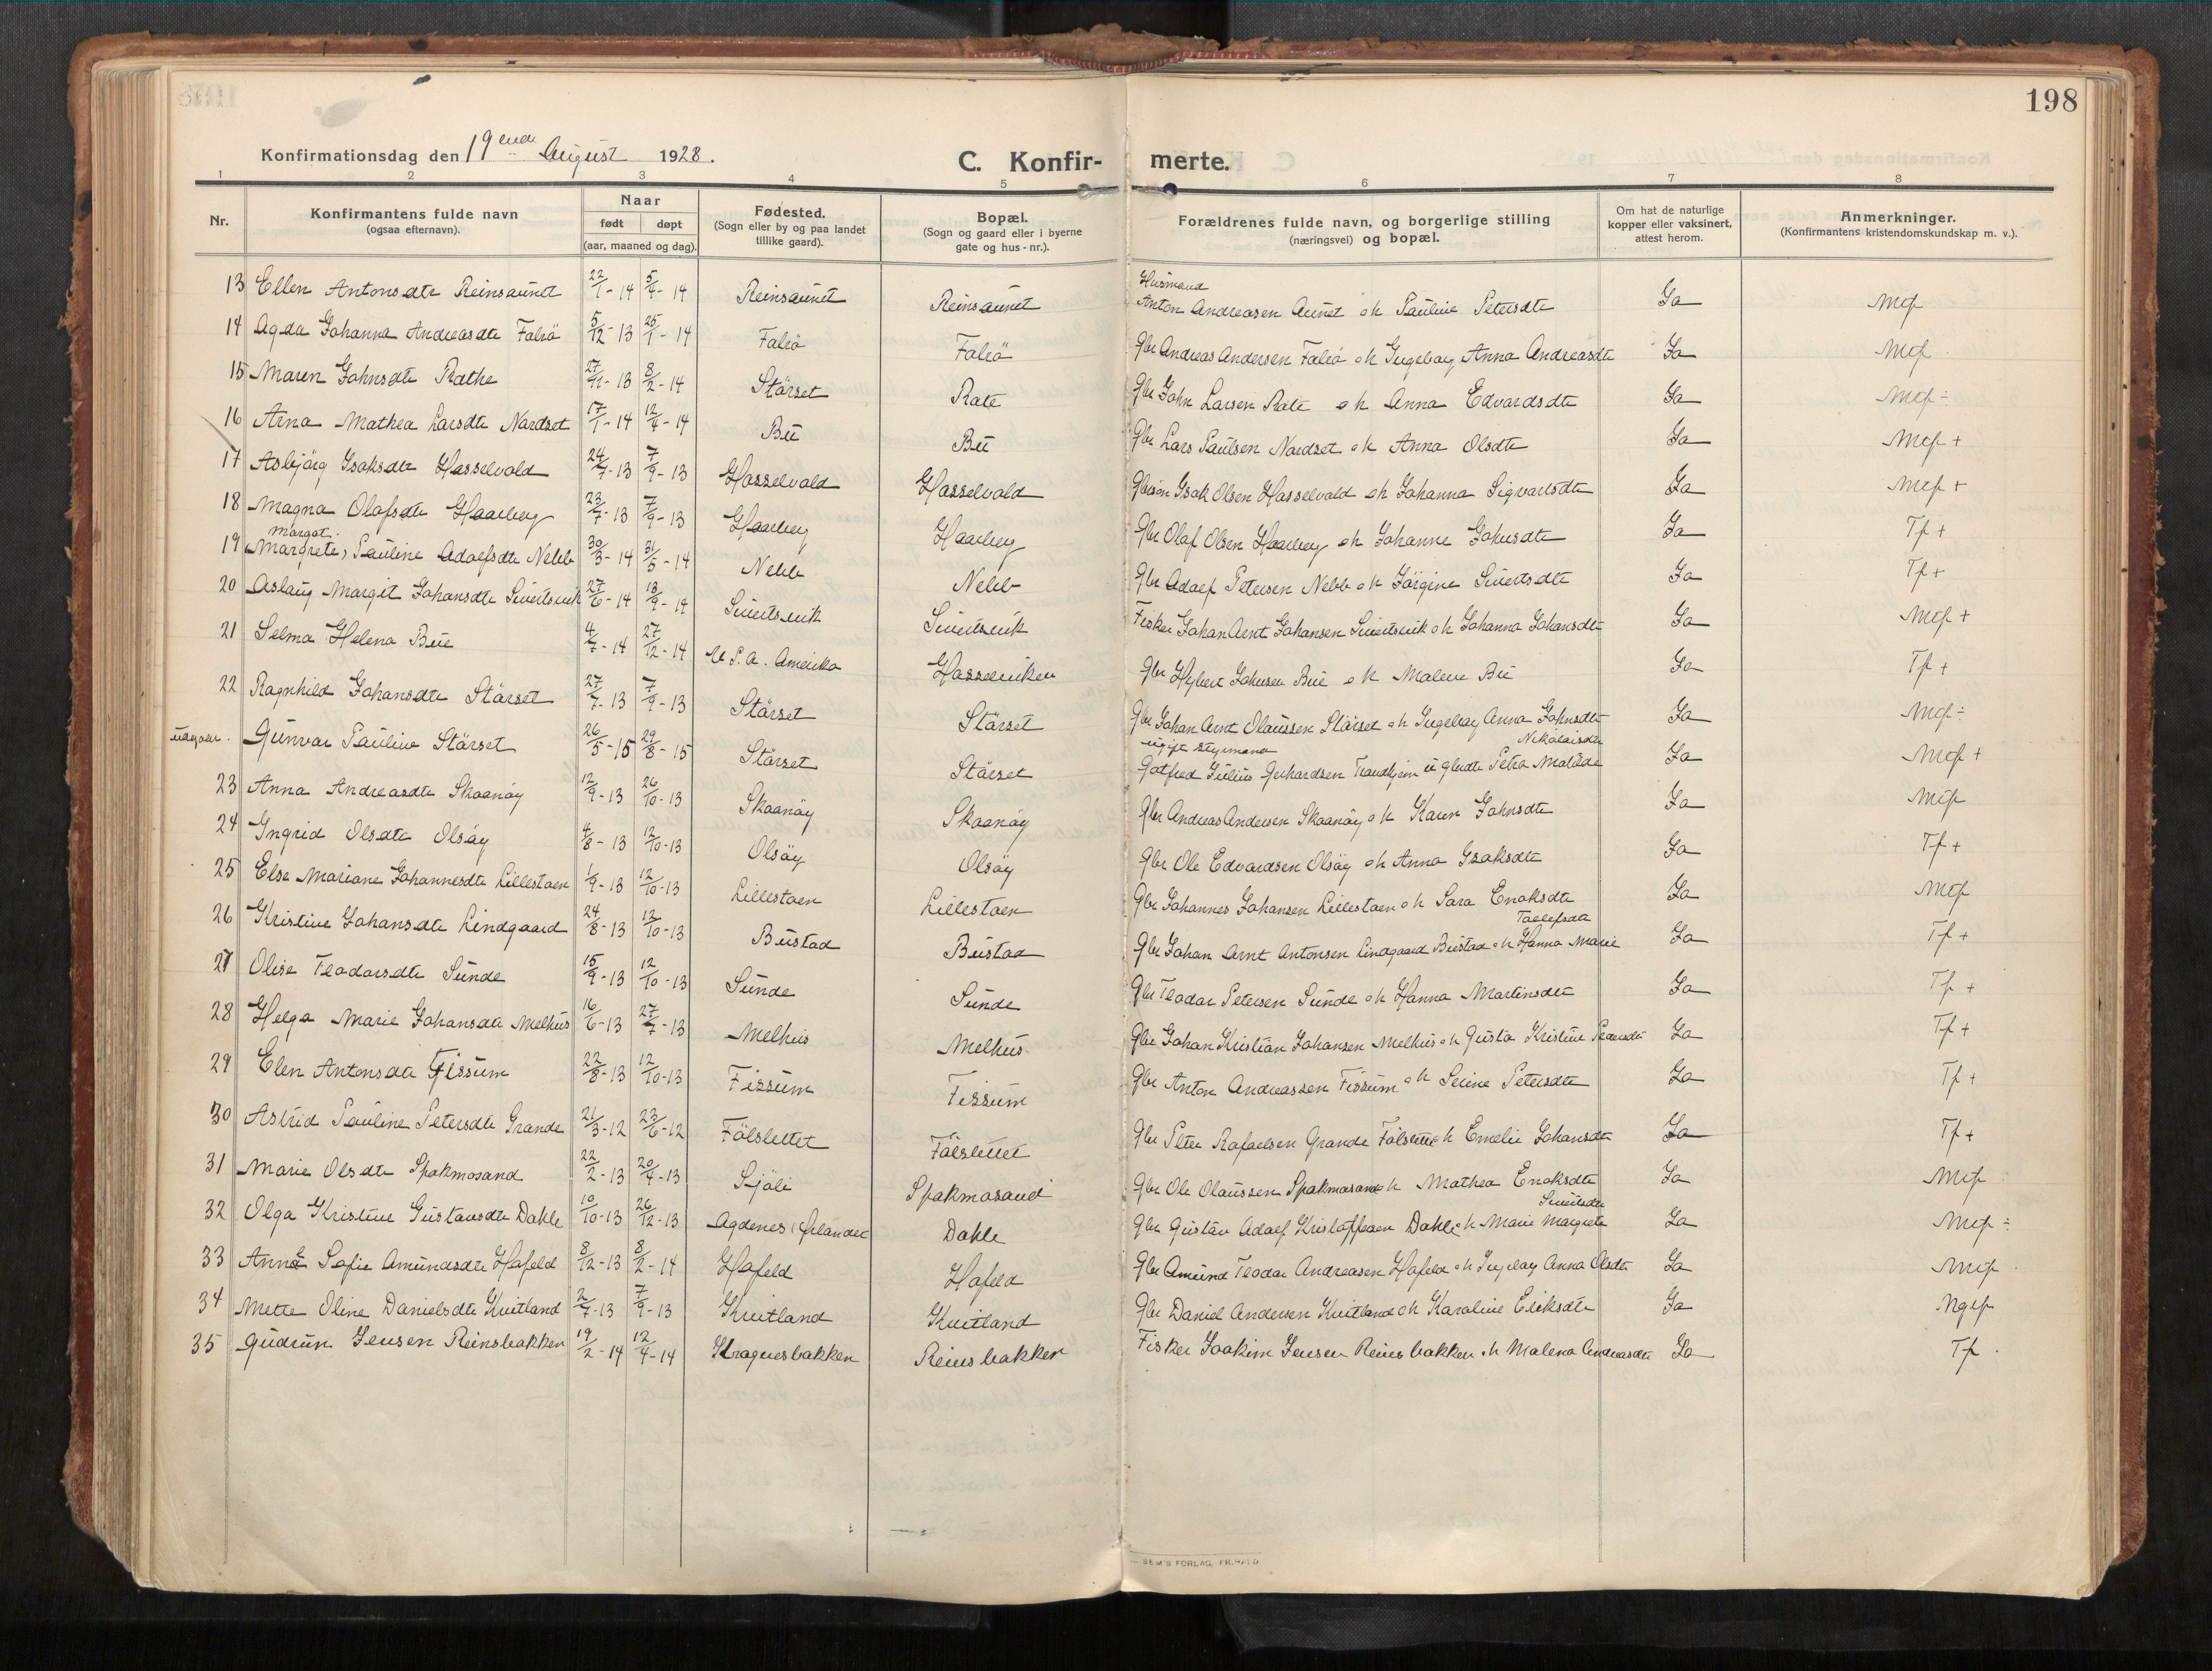 198
Konfirmationsdag den 19ende August 1928.
C. Konfir- merte.
1 2 3 4 5 6 7 8
Nr. Konfirmantens fulde navn (ogsaa efternavn). Naar født døpt (aar, maaned og dag). Fødested. (Sogn eller by og paa landet tillike gaard). Bopæl. (Sogn og gaard eller i byerne gate og hus-nr.). Forældrenes fulde navn, og borgerlige stilling (næringsvei) og bopæl. Om hat de naturlige kopper eller vaksinert, attest herom. Anmerkninger. (Konfirmantens kristendomskundskap m. v.).
13 Ellen Antonsdtr Reinsaunet 22/1-14 5/4-14 Reinsaunet Reinsaunet Husmand Anton Andreasen Aunet o h Pauline Petersdtr Ja Mcf
14 Agda Johanna Andreasdtr Falrö 5/12-13 25/1-14 Falrö Falrö Gbr Andreas Andersen Falrö o h Ingeborg Anna Andreasdtr Ja Mcf
15 Maren Johnsdtr Rathe 27/11-13 8/2-14 Störset Rate Gbr John Larsen Rate o h Anna Edvardsdtr Ja Mcf ÷
16 Arna Mathea Larsdtr Nordset 17/1-14 12/4-14 Bü Bü Gbr Lars Paulsen Nordset o h Anna Olsdtr Ja Mcf +
17 Asbjörg Isaksdtr Hasselvold 24/7-13 7/9-13 Hasselvold Hasselvold Gbrsön Isak Olsen Hasselvold o h Johanna Sigvartsdtr Ja Mcf +
18 Magna Olafsdtr Haarberg 23/7-13 7/9-13 Haarberg Haarberg Gbr Olaf Olsen Haarberg o h Johanne Johnsdtr Ja Tf +
19 Margot (Margrete) Pauline Adolfsdtr Nebb 30/3-14 31/5-14 Nebb Nebb Gbr Adolf Petersen Nebb o h Jörgine Sivertsdtr Ja Tf +
20 Aslaug Margit Johansdtr Sivertsvik 27/6-14 13/9-14 Sivertsvik Sivertsvik Fisker Johan Arnt Johansen Sivertsvik o h Johanna Johansdtr Ja Mcf +
21 Selma Helena Bue 4/7-14 27/12-14 U. S. A. Amerika Hasselviken Gbr Hybert Johnsen Bue o h Malene Bü Ja Tf +
22 Ragnhild Johansdtr Störset 27/7-13 7/9-13 Störset Störset Gbr Johan Arnt Olaussen Störset o h Ingeborg Anna Johnsdtr Ja Mcf ÷
udgaar. Gunvor Pauline Störset 26/5-15 29/8-15 Störset Störset ugift styrmand Gotfred Julius Gerhardsen Trondhjem u gbrdtr Petra Matilde Nikolaisdtr Ja Mcf +
23 Anna Andreasdtr Skaanöy 12/9-13 26/10-13 Skaanöy Skaanöy Gbr Andreas Andersen Skaanöy o h Karen Johnsdtr Ja Mcf
24 Ingrid Olsdtr Olsöy 4/8-13 12/10-13 Olsöy Olsöy Gbr Ole Edvardsen Olsöy o h Anna Isaksdtr Ja Tf +
25 Else Mariane Johannesdtr Lillestöen 1/9-13 12/10-13 Lillestöen Lillestöen Gbr Johannes Johansen Lillestöen o h Sara Enoksdtr Ja Mcf
26 Kristine Johansdtr Lindgaard 24/8-13 12/10-13 Bustad Bustad Gbr Johan Arnt Antonsen Lindgaard Bustad o h Hanna Marie Tollefsdtr Ja Tf +
27 Olise Teodorsdtr Sunde 15/9-13 12/10-13 Sunde Sunde Gbr Teodor Petersen Sunde o h Hanna Martinsdtr Ja Tf +
28 Helga Marie Johansdtr Melhus 16/6-13 27/7-13 Melhus Melhus Gbr Johan Kristian Johansen Melhus o h Gusta Kristine Pedersdtr Ja Tf +
29 Elen Antonsdtr Fissum 22/8-13 12/10-13 Fissum Fissum Gbr Anton Andreassen Fissum o h Serine Petersdtr Ja Tf +
30 Astrid Pauline Petersdtr Grande 21/3-12 23/6-12 Fölslettet Fölslettet Gbr Peter Rafaelsen Grande Fölslettet o h Emelie Johansdtr Ja Tf +
31 Marie Olsdtr Spakmosand 22/2-13 20/4-13 Sjöli Spakmosand Gbr Ole Olaussen Spakmosand o h Mathea Enoksdtr Ja Mcf
32 Olga Kristine Gustavsdtr Dahle 10/10-13 26/12-13 Agdenes i Ørlandet Dahle Gbr Gustav Adolf Kristoffersen Dahle o h Marie Margrete Sivertsdtr Ja Mcf ÷
33 Anne Sofie Amundsdtr Hofeld 8/12-13 8/2-14 Hofeld Hofeld Gbr Amund Teodor Andreasen Hofeld o h Ingeborg Anna Olsdtr Ja Mcf
34 Mette Oline Danielsdtr Kvitland 2/7-13 7/9-13 Kvitland Kvitland Gbr Daniel Andersen Kvitland o h Karoline Eriksdtr Ja Ngcf
35 Gudrun Jensen Reinsbakken 19/2-14 12/4-14 Kragnesbakken Reinsbakken Fisker Joakim Jensen Reinsbakken o h Malena Andreasdtr Ja Tf
SEM'S FORLAG, FR.HALD